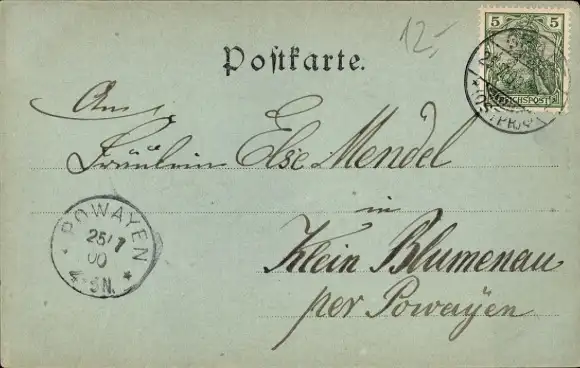 12,-
5 5
REICHSPOST
(OSTPR.)
Postkarte.
An
Fräulein Else Mendel
in
Klein Blumenau
per Powayen
POWAYEN
25/7
00
4-5N.